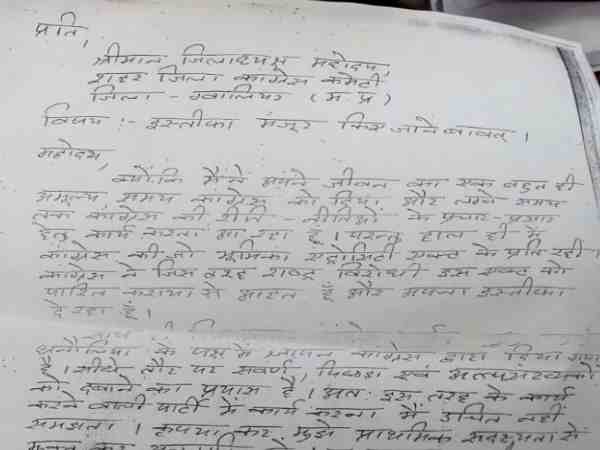 प्रति,
श्रीमान जिलाध्यक्ष महोदय,
शहर जिला कांग्रेस कमेटी
जिला - ग्वालियर (म प्र)
विषय :- इस्तीफा मंजूर किए जाने बावत् ।
महोदय,
क्योंकि मैंने अपने जीवन का एक बहुत ही
अमूल्य समय कांग्रेस को दिया और लम्बे समय
तक कांग्रेस की रीति - नीतिओं के प्रचार - प्रसार
हेतु कार्य करता आ रहा हूँ । परन्तु हाल ही में
कांग्रेस की जो भूमिका एट्रोसिटी एक्ट के प्रति रही ।
कांग्रेस ने जिस तरह राष्ट्र विरोधी इस एक्ट को
पारित कराया से आहत हूँ और अपना इस्तीफा
दे रहा हूँ ।
के पक्ष में कांग्रेस द्वारा दिया गया
है । सीधे तौर पर सवर्ण, पिछडा एवं अल्पसंख्यकों
को दबाने का प्रयास है । अतः इस तरह के कार्य
करने वाली पार्टी में कार्य करना मैं उचित नहीं
समझता । कृपया कर मुझे प्राथमिक सदस्यता से